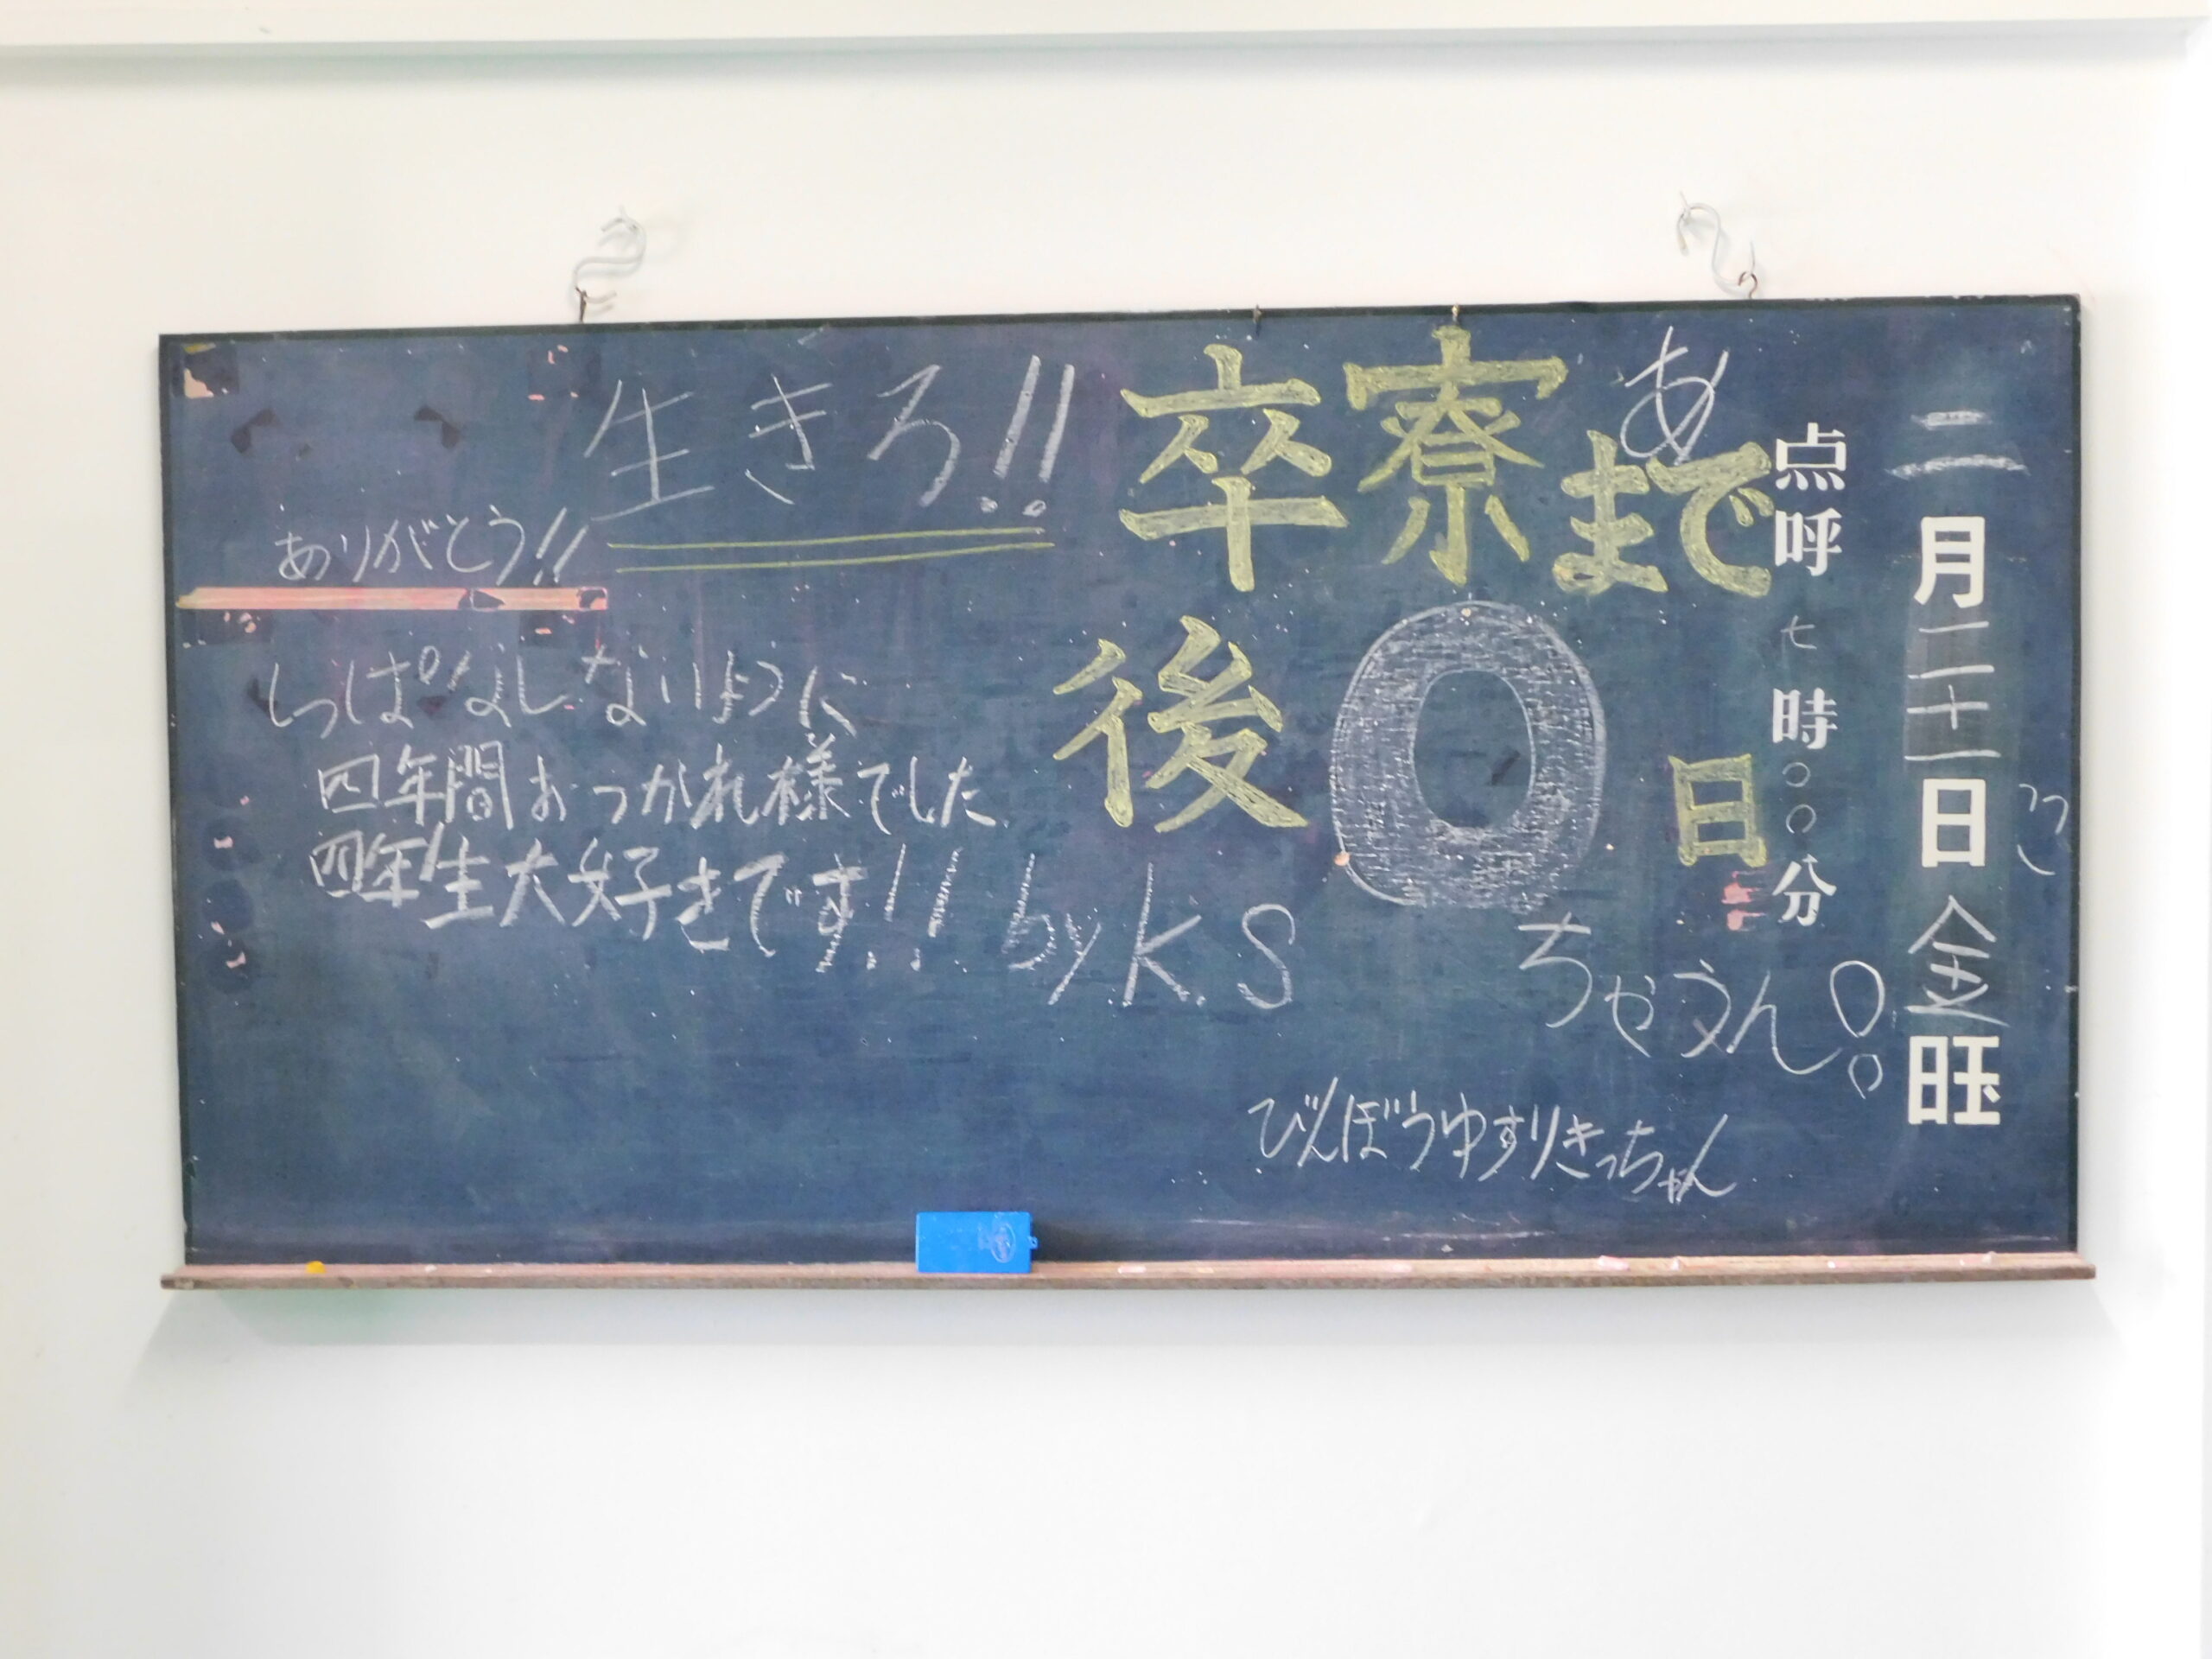 二月二十一日金旺
点呼七時〇〇分
あ
卒寮まで
後0日
ちゃうん
びんぼうゆすりきっちゃん
生きろ!!
ありがとう!!
しっぱなしないように
四年間おつかれ様でした
四年生大好きです!! by K.S